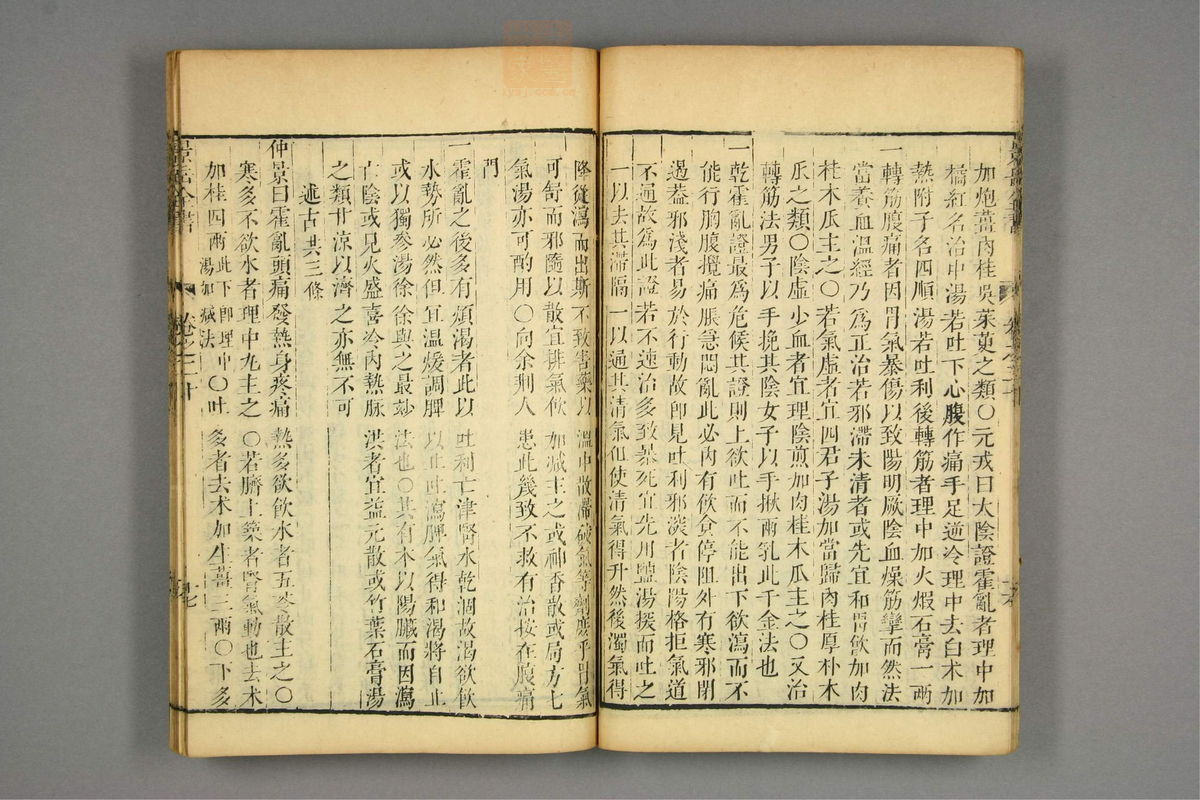 加炮薑肉桂吳茱萸之類〇元戎曰太陰證霍亂者理中加
橘紅名治中湯若吐下心腹作痛手足逆冷理中去白术加
熱附子名四順湯若吐利後轉筋者理中加火煅石膏一兩
一轉筋腹痛者因胃氣暴傷以致陽明厥陰血燥筋攣而然法
當養血溫經乃為正治若邪滯未清者或先宜和胃飲加肉
桂木瓜主之〇若氣虛者宜四君子湯加當歸肉桂厚朴木
瓜之類〇陰虛少血者宜理陰煎加肉桂木瓜主之〇又治
轉筋法男子以手挽其陰女子以手揪兩乳此千金法也
一乾霍亂證最為危候其證則上欲吐而不能出下欲瀉而不
能行胸腹攪痛脹急悶亂此必內有飲食停阻外有寒邪閉
遏葢邪淺者易於行動故即見吐利邪深者陰陽格拒氣道
不通故為此證若不速治多致暴死宜先用鹽湯探而吐之
一以去其滯隔一以通其清氣但使清氣得升然後濁氣得
降從瀉而出斯不致害藥以溫中散滯破氣等劑庶乎胃氣
可舒而邪隨以散宜排氣飲加減主之或神香散或局方七
氣湯亦可酌用〇向余荆人患此幾致不救有治按在腹痛
門
一霍亂之後多有煩渴者此以吐利亡津腎水乾涸故渴欲飲
水勢所必然但宜溫煖調脾以止吐瀉脾氣得和渴將自止
或以獨參湯徐徐與之最妙法也〇其有本以陽臟而因瀉
亡陰或見火盛喜冷內熱脉洪者宜益元散或竹葉石膏湯
之類甘涼以濟之亦無不可
述古共三條
仲景曰霍亂頭痛發熱身疼痛熱多欲飲水者五苓散主之〇
寒多不欲水者理中丸主之〇若臍上築者腎氣動也去术
加桂四兩此下即理中湯加減法〇吐多者去术加生薑三兩〇下多
景岳全書
卷之二十